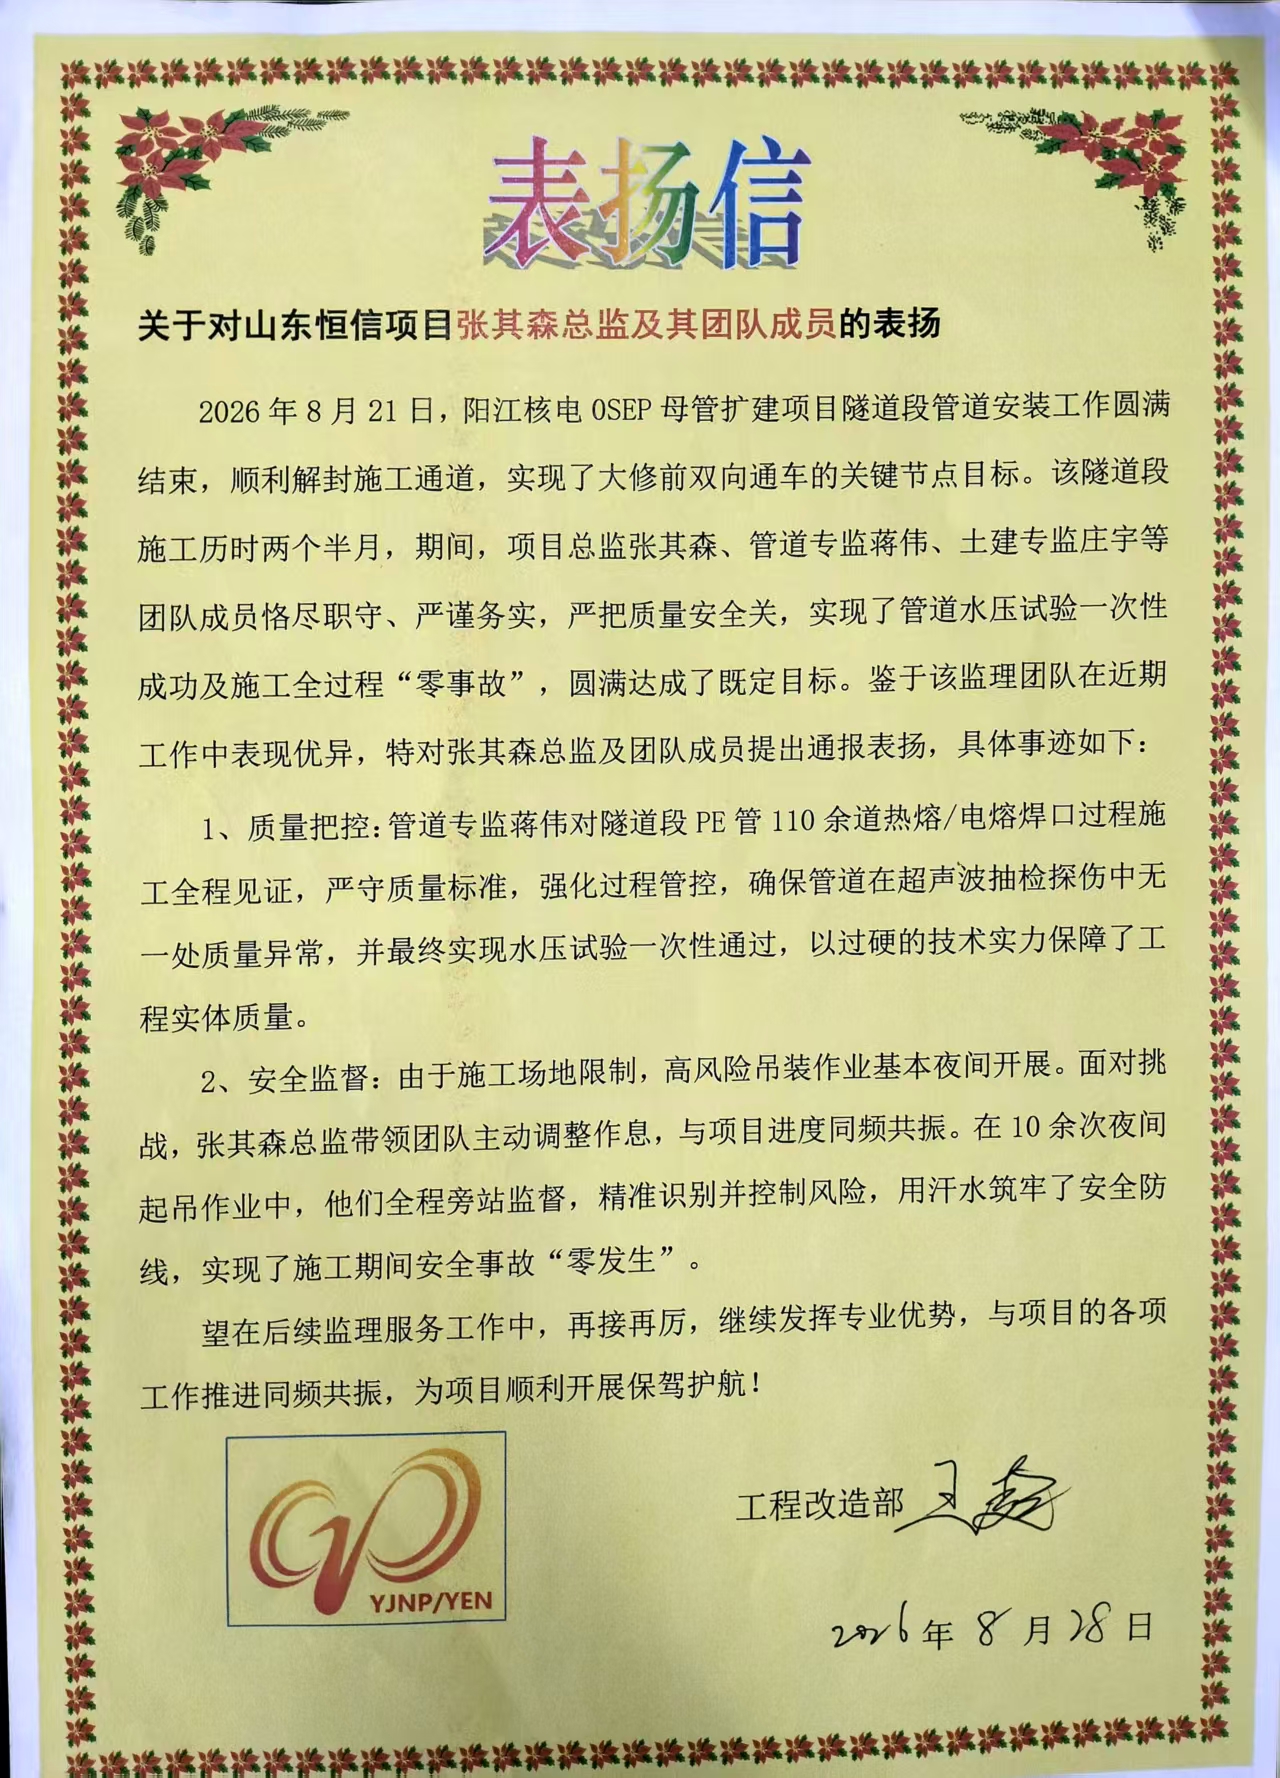 表扬信
关于对山东恒信项目张其森总监及其团队成员的表扬
2026年8月21日，阳江核电0SEP母管扩建项目隧道段管道安装工作圆满
结束，顺利解封施工通道，实现了大修前双向通车的关键节点目标。该隧道段
施工历时两个半月，期间，项目总监张其森、管道专监蒋伟、土建专监庄宇等
团队成员恪尽职守、严谨务实，严把质量安全关，实现了管道水压试验一次性
成功及施工全过程“零事故”，圆满达成了既定目标。鉴于该监理团队在近期
工作中表现优异，特对张其森总监及团队成员提出通报表扬，具体事迹如下：
1、质量把控：管道专监蒋伟对隧道段PE管110余道热熔/电熔焊口过程施
工全程见证，严守质量标准，强化过程管控，确保管道在超声波抽检探伤中无
一处质量异常，并最终实现水压试验一次性通过，以过硬的技术实力保障了工
程实体质量。
2、安全监督：由于施工场地限制，高风险吊装作业基本夜间开展。面对挑
战，张其森总监带领团队主动调整作息，与项目进度同频共振。在10余次夜间
起吊作业中，他们全程旁站监督，精准识别并控制风险，用汗水筑牢了安全防
线，实现了施工期间安全事故“零发生”。
望在后续监理服务工作中，再接再厉，继续发挥专业优势，与项目的各项
工作推进同频共振，为项目顺利开展保驾护航！
YJNP/YEN
工程改造部 王
2026年8月28日